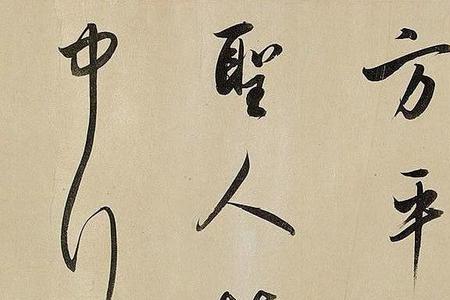 方平
聖人
中